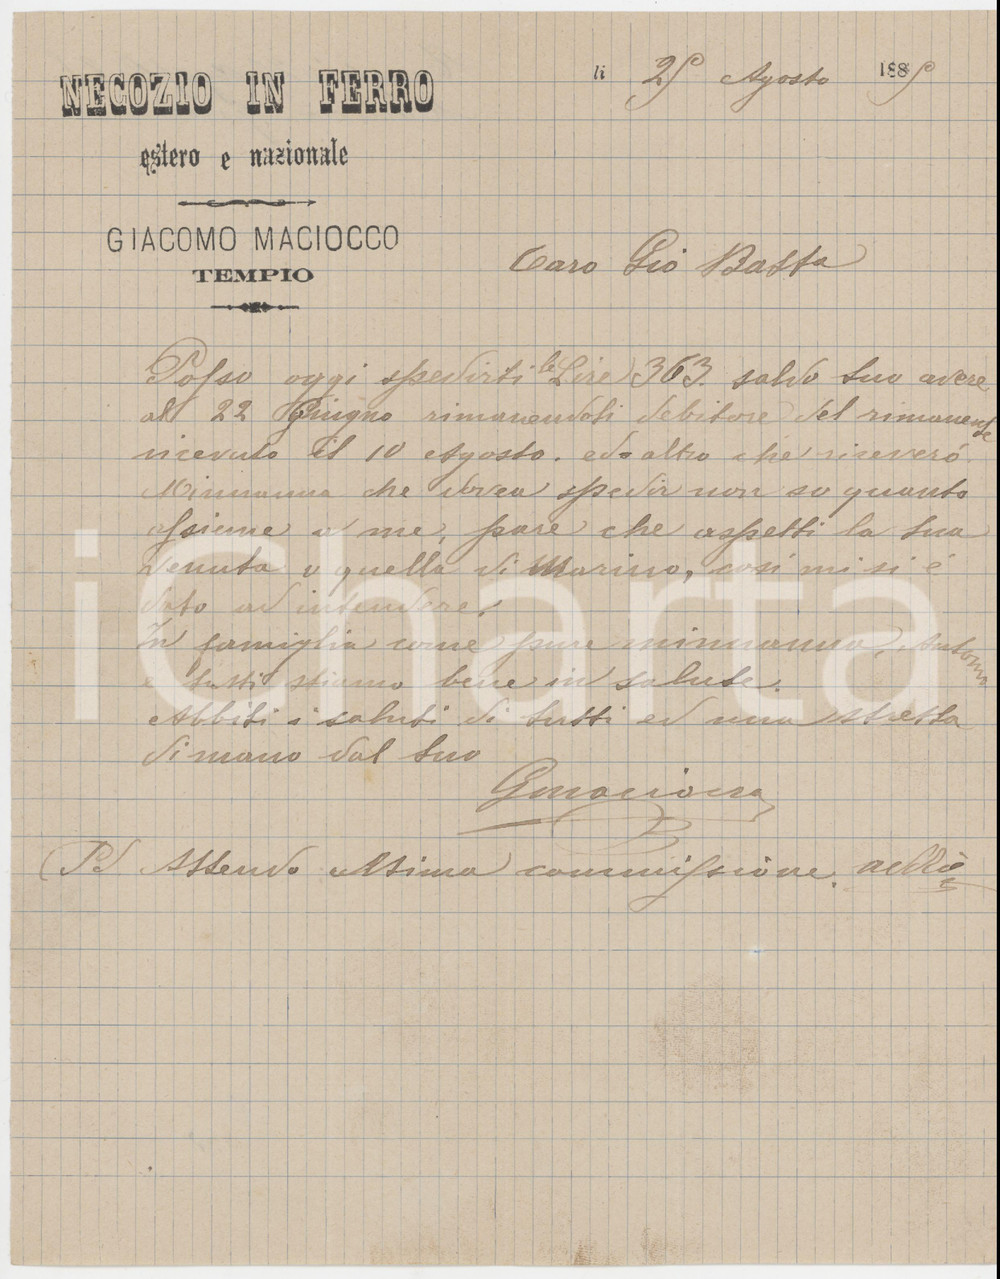 NEGOZIO IN FERRO
estero e nazionale
GIACOMO MACIOCCO
TEMPIO
li 25 Agosto 1885
Caro Gio Batta
Posso oggi spedirti le Lire 363. saldo tuo avere
al 22 Giugno rimanendoti debitore del rimanente
ricevuto il 10 Agosto. ed altro che riceveró
Minnanna che dovea spedir non so quanto
assieme a me, pare che aspetti la tua
venuta o quella di Marino, cosí mi si é
dato ad intendere.
In famiglia come pure minnanna, Antonio
e tutti stiamo bene in salute.
Abbiti i saluti di tutti ed una stretta
di mano dal tuo
GMaciocco
PS Attendo ultima commissione.
iCharta